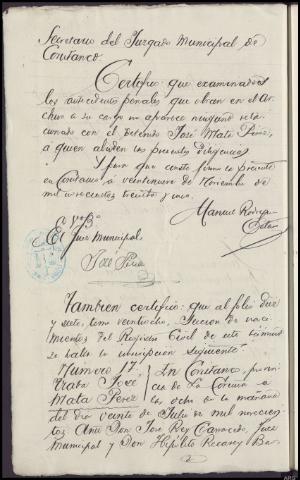 Secretario del Juzgado Municipal de
Constanco.
Certifico: que examinados
los antecedentes penales que obran en el Ar-
chivo a su cargo no aparece ninguno rela-
cionado con el detenido José Mata Pérez,
a quien aluden las presentes diligencias
Y para que conste firmo la presente
en Constanco a veintinueve de Noviembre de
mil novecientos treinta y uno.
Manuel Rodrígu
Vº Bº
El Juez Municipal,
José Pérez
Tambien certifico: que al folio diez
y siete, tomo veintiocho, Seccion de naci-
mientos del Registro Civil de este término
se halla la inscripcion siguiente
Numero 17.
José
Mata Pérez
En Constanco, provin-
cia de La Coruña a
las ocho de la mañana
del dia veinte de Julio de mil novecien-
tos Ante Don José Rey Caneda, Juez
Municipal y Don Hipólito Recarey Ba-